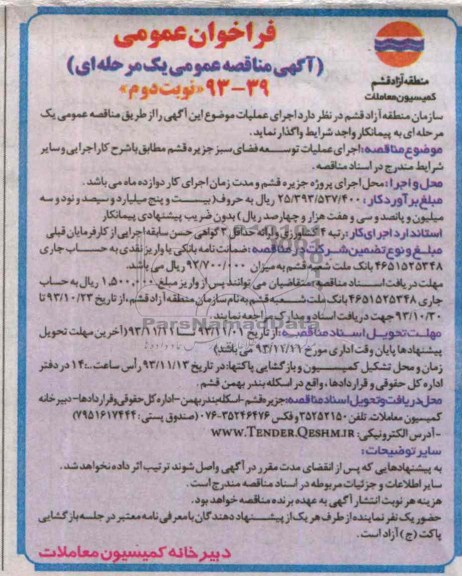 فراخوان عمومی
(آگهی مناقصه عمومی یک مرحله ای)
۹۳-۳۹ «نوبت دوم»
منطقه آزاد قشم
کمیسیون معاملات
سازمان منطقه آزاد قشم در نظر دارد اجرای عملیات موضوع این آگهی را از طریق مناقصه عمومی یک
مرحله ای به پیمانکار واجد شرایط واگذار نماید.
موضوع مناقصه: اجرای عملیات توسعه فضای سبز جزیره قشم مطابق با شرح کار اجرایی و سایر
شرایط مندرج در اسناد مناقصه.
محل و اجرا: محل اجرای پروژه جزیره قشم و مدت زمان اجرای کار دوازده ماه می باشد.
مبلغ برآورد کار: ۲۵/۳۹۳/۵۳۷/۴۰۰ ریال به حروف( بیست و پنج میلیارد و سیصد و نود و سه
میلیون و پانصد و سی و هفت هزار و چهارصد ریال) بدون ضریب پیشنهادی پیمانکار
استاندارد اجرای کار: رتبه ۴ کشاورزی و ارائه حداقل ۳ گواهی حسن سابقه اجرایی از کارفرمایان قبلی
مبلغ و نوع تضمین شرکت در مناقصه: ضمانت نامه بانکی یا واریز نقدی به حساب جاری
۴۶۵۱۵۲۵۳۴۸ بانک ملت شعبه قشم به میزان ۹۲/۷۰۰/۰۰۰ ریال می باشد.
مهلت دریافت اسناد مناقصه: متقاضیان می توانند پس از واریز مبلغ ۱,۵۰۰,۰۰۰ ریال به حساب
جاری ۴۶۵۱۵۲۵۳۴۸ بانک ملت شعبه قشم به نام سازمان منطقه آزاد قشم، از تاریخ ۹۳/۱۰/۲۳ تا
۹۳/۱۰/۳۰ جهت دریافت اسناد و مدارک مراجعه نمایند.
ParsNamadData
مهلت تحویل اسناد مناقصه: از تاریخ ۹۳/۱۱/۰۱ تا ۹۳/۱۱/۱۱ (آخرین مهلت تحویل
پیشنهادها پایان وقت اداری مورخ ۹۳/۱۱/۱۱ می باشد)
زمان و محل تشکیل کمیسیون و بازگشایی پاکتها: در تاریخ ۹۳/۱۱/۱۳ رأس ساعت ۱۴:۰۰ در دفتر
اداره کل حقوقی و قراردادها، واقع در اسکله بندر بهمن قشم.
محل دریافت و تحویل اسناد مناقصه: جزیره قشم- اسکله بندر بهمن - اداره کل حقوقی و قراردادها- دبیرخانه
کمیسیون معاملات. تلفن ۳۵۲۵۲۱۵۰ و فکس ۳۵۲۴۶۴۷۶-۰۷۶ (صندوق پستی: ۷۹۵۱۶۱۷۴۴۴)
- آدرس الکترونیکی: WWW.TENDER.QESHM.IR
سایر توضیحات:
به پیشنهادهایی که پس از انقضای مدت مقرر در آگهی واصل شوند ترتیب اثر داده نخواهد شد.
سایر اطلاعات و جزئیات مربوطه در اسناد مناقصه مندرج است.
هزینه هر نوبت انتشار آگهی به عهده برنده مناقصه خواهد بود.
حضور یک نفر نماینده از طرف هر یک از پیشنهاد دهندگان با معرفی نامه معتبر در جلسه بازگشایی
پاکت (ج) آزاد است.
دبیرخانه کمیسیون معاملات